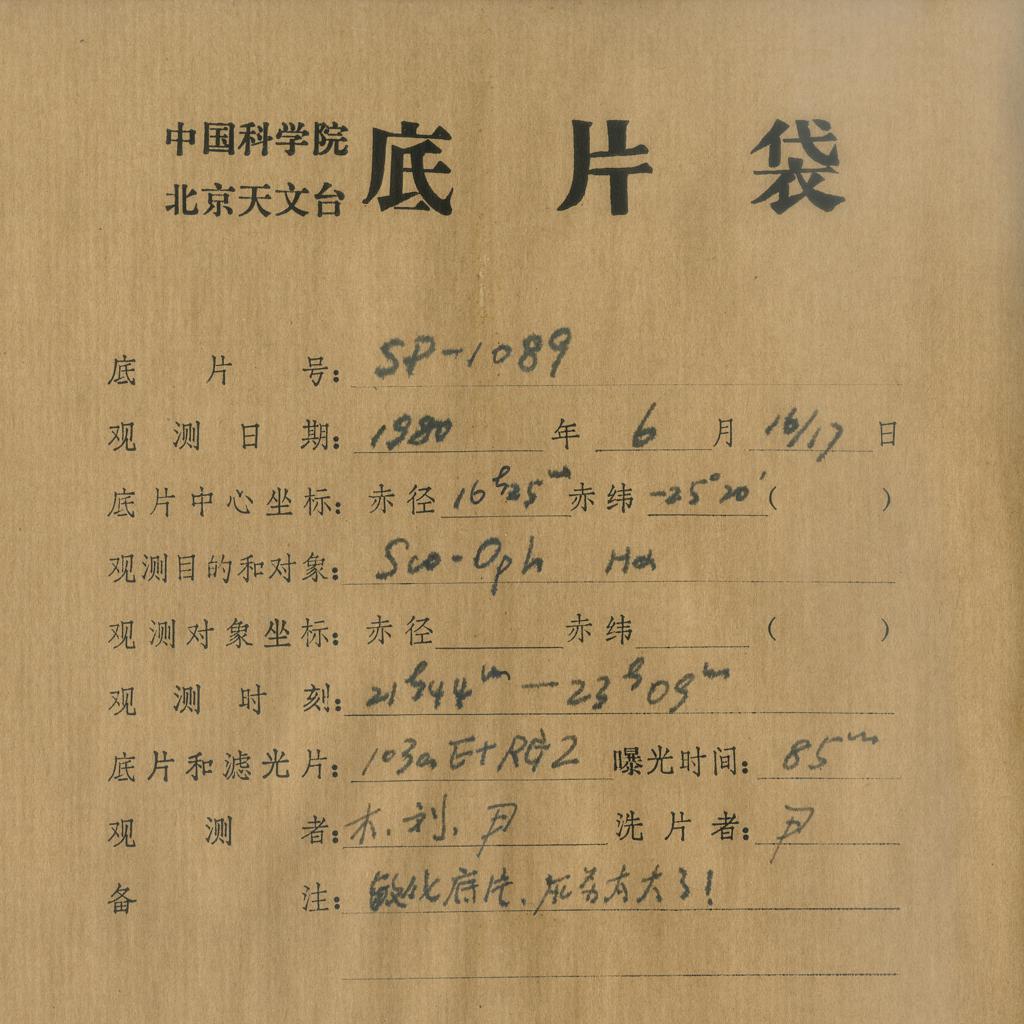 中国科学院
北京天文台
底片袋
底片号：SP-1089
观测日期：1980年6月16/17日
底片中心坐标：赤径16h25m赤纬-25°20′（ ）
观测目的和对象：Sco-Oph Hα
观测对象坐标：赤径 赤纬 （ ）
观测时刻：21h44m—23h09m
底片和滤光片：103aE+RG2 曝光时间：85m
观测者： 刘，尹 洗片者：尹
备注：敏化底片，灰雾太大了！